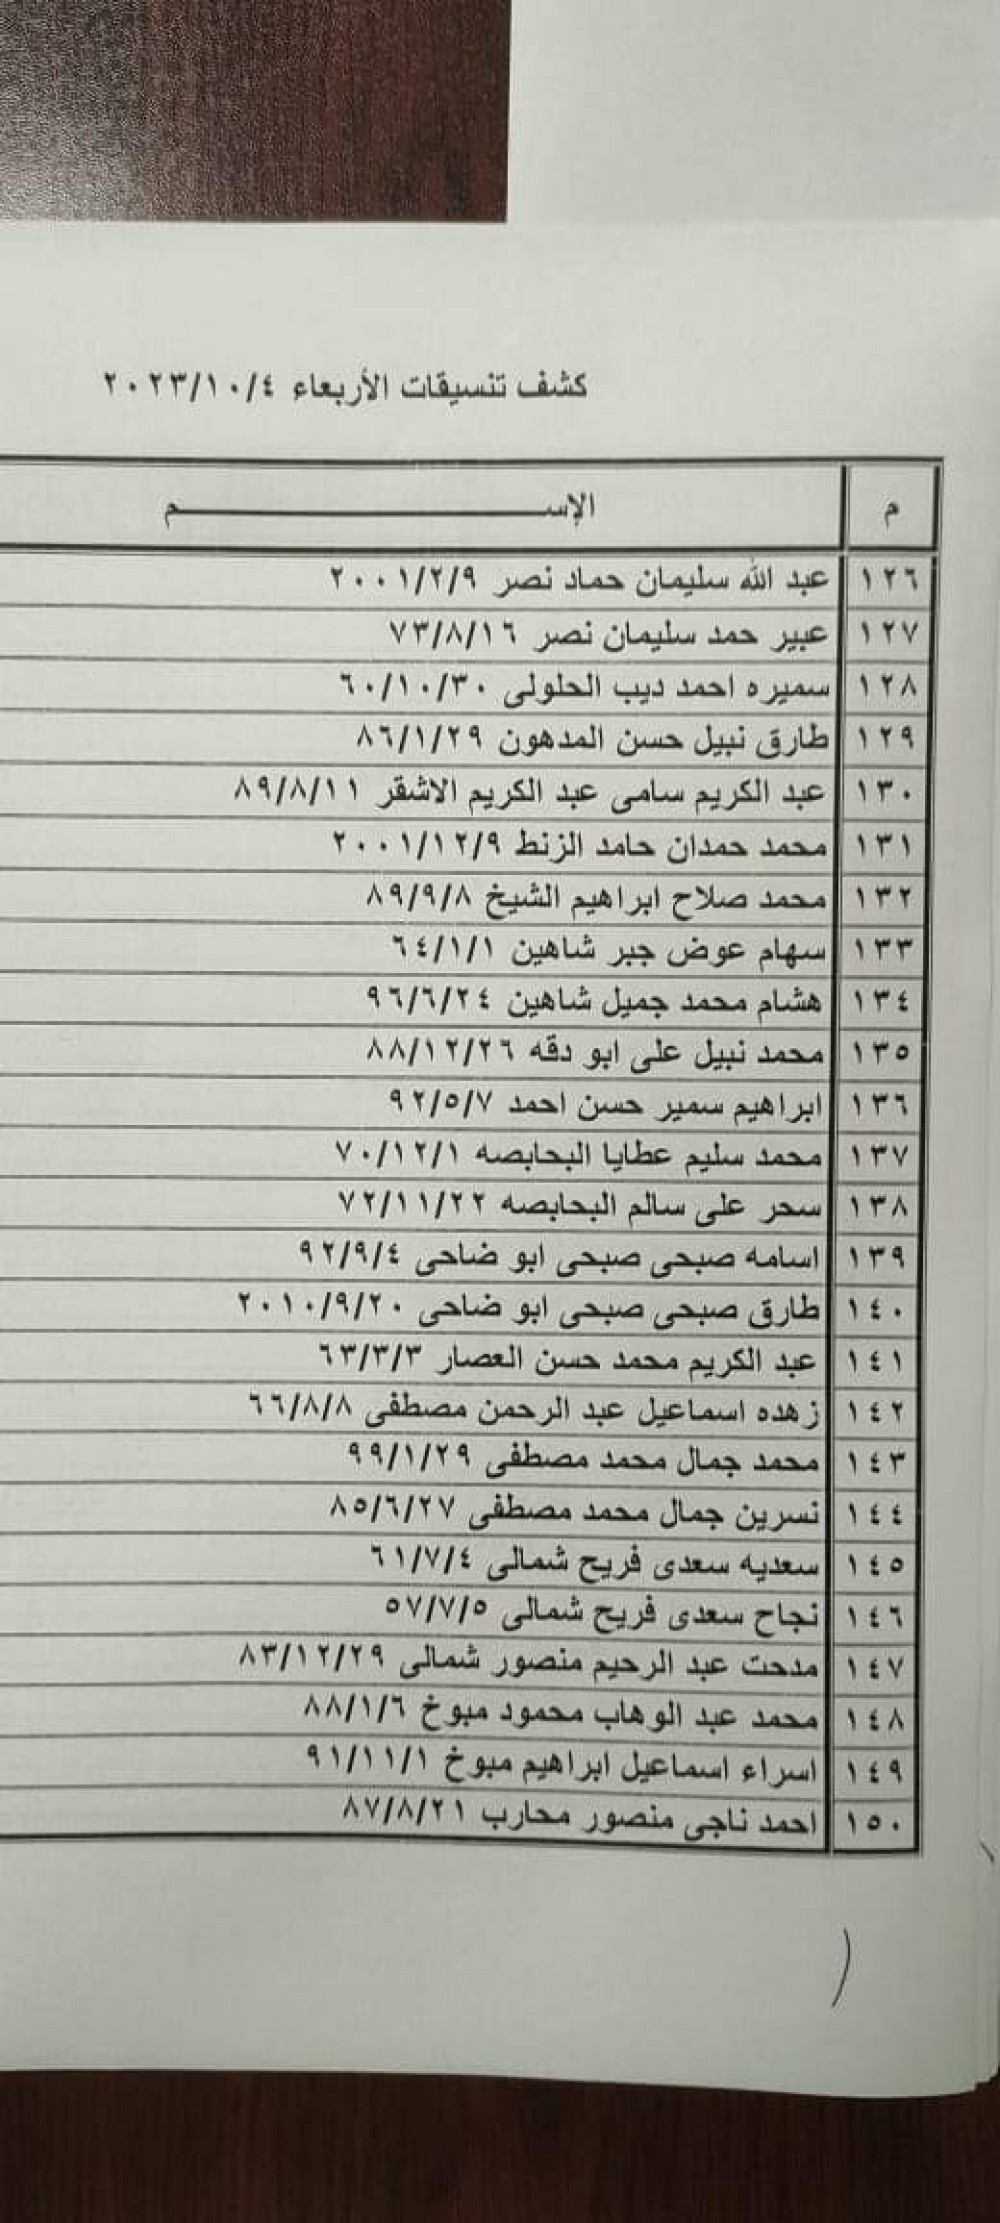 كشف تنسيقات الأربعاء ٢٠٢٣/١٠/٤
م الإســـــــــــــم
١٢٦ عبد الله سليمان حماد نصر ٢٠٠١/٢/٩
١٢٧ عبير حمد سليمان نصر ٧٣/٨/١٦
١٢٨ سميره احمد ديب الحلولى ٦٠/١٠/٣٠
١٢٩ طارق نبيل حسن المدهون ٨٦/١/٢٩
١٣٠ عبد الكريم سامى عبد الكريم الاشقر ٨٩/٨/١١
١٣١ محمد حمدان حامد الزنط ٢٠٠١/١٢/٩
١٣٢ محمد صلاح ابراهيم الشيخ ٨٩/٩/٨
١٣٣ سهام عوض جبر شاهين ٦٤/١/١
١٣٤ هشام محمد جميل شاهين ٩٦/٦/٢٤
١٣٥ محمد نبيل على ابو دقه ٨٨/١٢/٢٦
١٣٦ ابراهيم سمير حسن احمد ٩٢/٥/٧
١٣٧ محمد سليم عطايا البحابصه ٧٠/١٢/١
١٣٨ سحر على سالم البحابصه ٧٢/١١/٢٢
١٣٩ اسامه صبحى صبحى ابو ضاحى ٩٢/٩/٤
١٤٠ طارق صبحى صبحى ابو ضاحى ٢٠١٠/٩/٢٠
١٤١ عبد الكريم محمد حسن العصار ٦٣/٣/٣
١٤٢ زهده اسماعيل عبد الرحمن مصطفى ٦٦/٨/٨
١٤٣ محمد جمال محمد مصطفى ٩٩/١/٢٩
١٤٤ نسرين جمال محمد مصطفى ٨٥/٦/٢٧
١٤٥ سعديه سعدى فريح شمالى ٦١/٧/٤
١٤٦ نجاح سعدى فريح شمالى ٥٧/٧/٥
١٤٧ مدحت عبد الرحيم منصور شمالى ٨٣/١٢/٢٩
١٤٨ محمد عبد الوهاب محمود مبوخ ٨٨/١/٦
١٤٩ اسراء اسماعيل ابراهيم مبوخ ٩١/١١/١
١٥٠ احمد ناجى منصور محارب ٨٧/٨/٢١